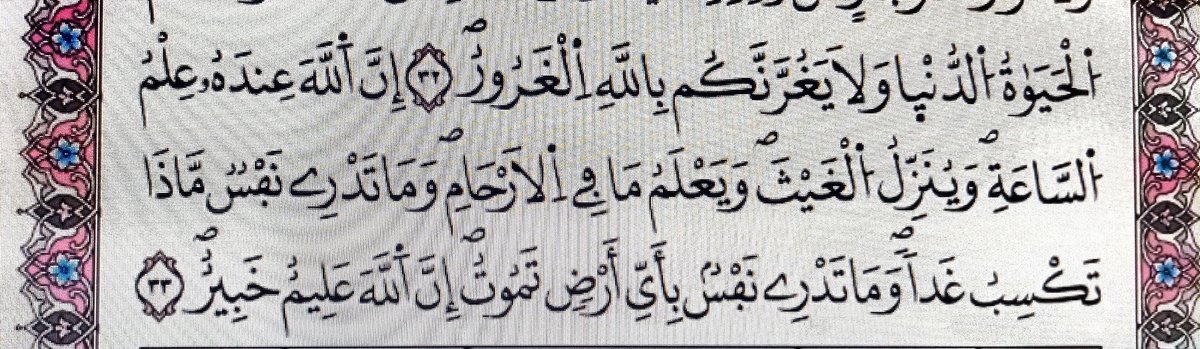 اُ۬لْحَيَوٰةُ اُ۬لدُّنْي۪ا وَلَا يَغُرَّنَّكُم بِاللَّهِ اِ۬لْغَرُورُۖ ٣٢ إِنَّ اَ۬للَّهَ عِندَهُۥ عِلْمُ
اُ۬لسَّاعَةِۖ وَيُنَزِّلُ اُ۬لْغَيْثَۖ وَيَعْلَمُ مَا فِے اِ۬لَارْحَامِۖ وَمَا تَدْرِے نَفْسٞ مَّاذَا
تَكْسِبُ غَداٗۖ وَمَا تَدْرِے نَفْسُۢ بِأَيِّ أَرْضٖ تَمُوتُۖ إِنَّ اَ۬للَّهَ عَلِيمٌ خَبِيرٞۖ ٣٣